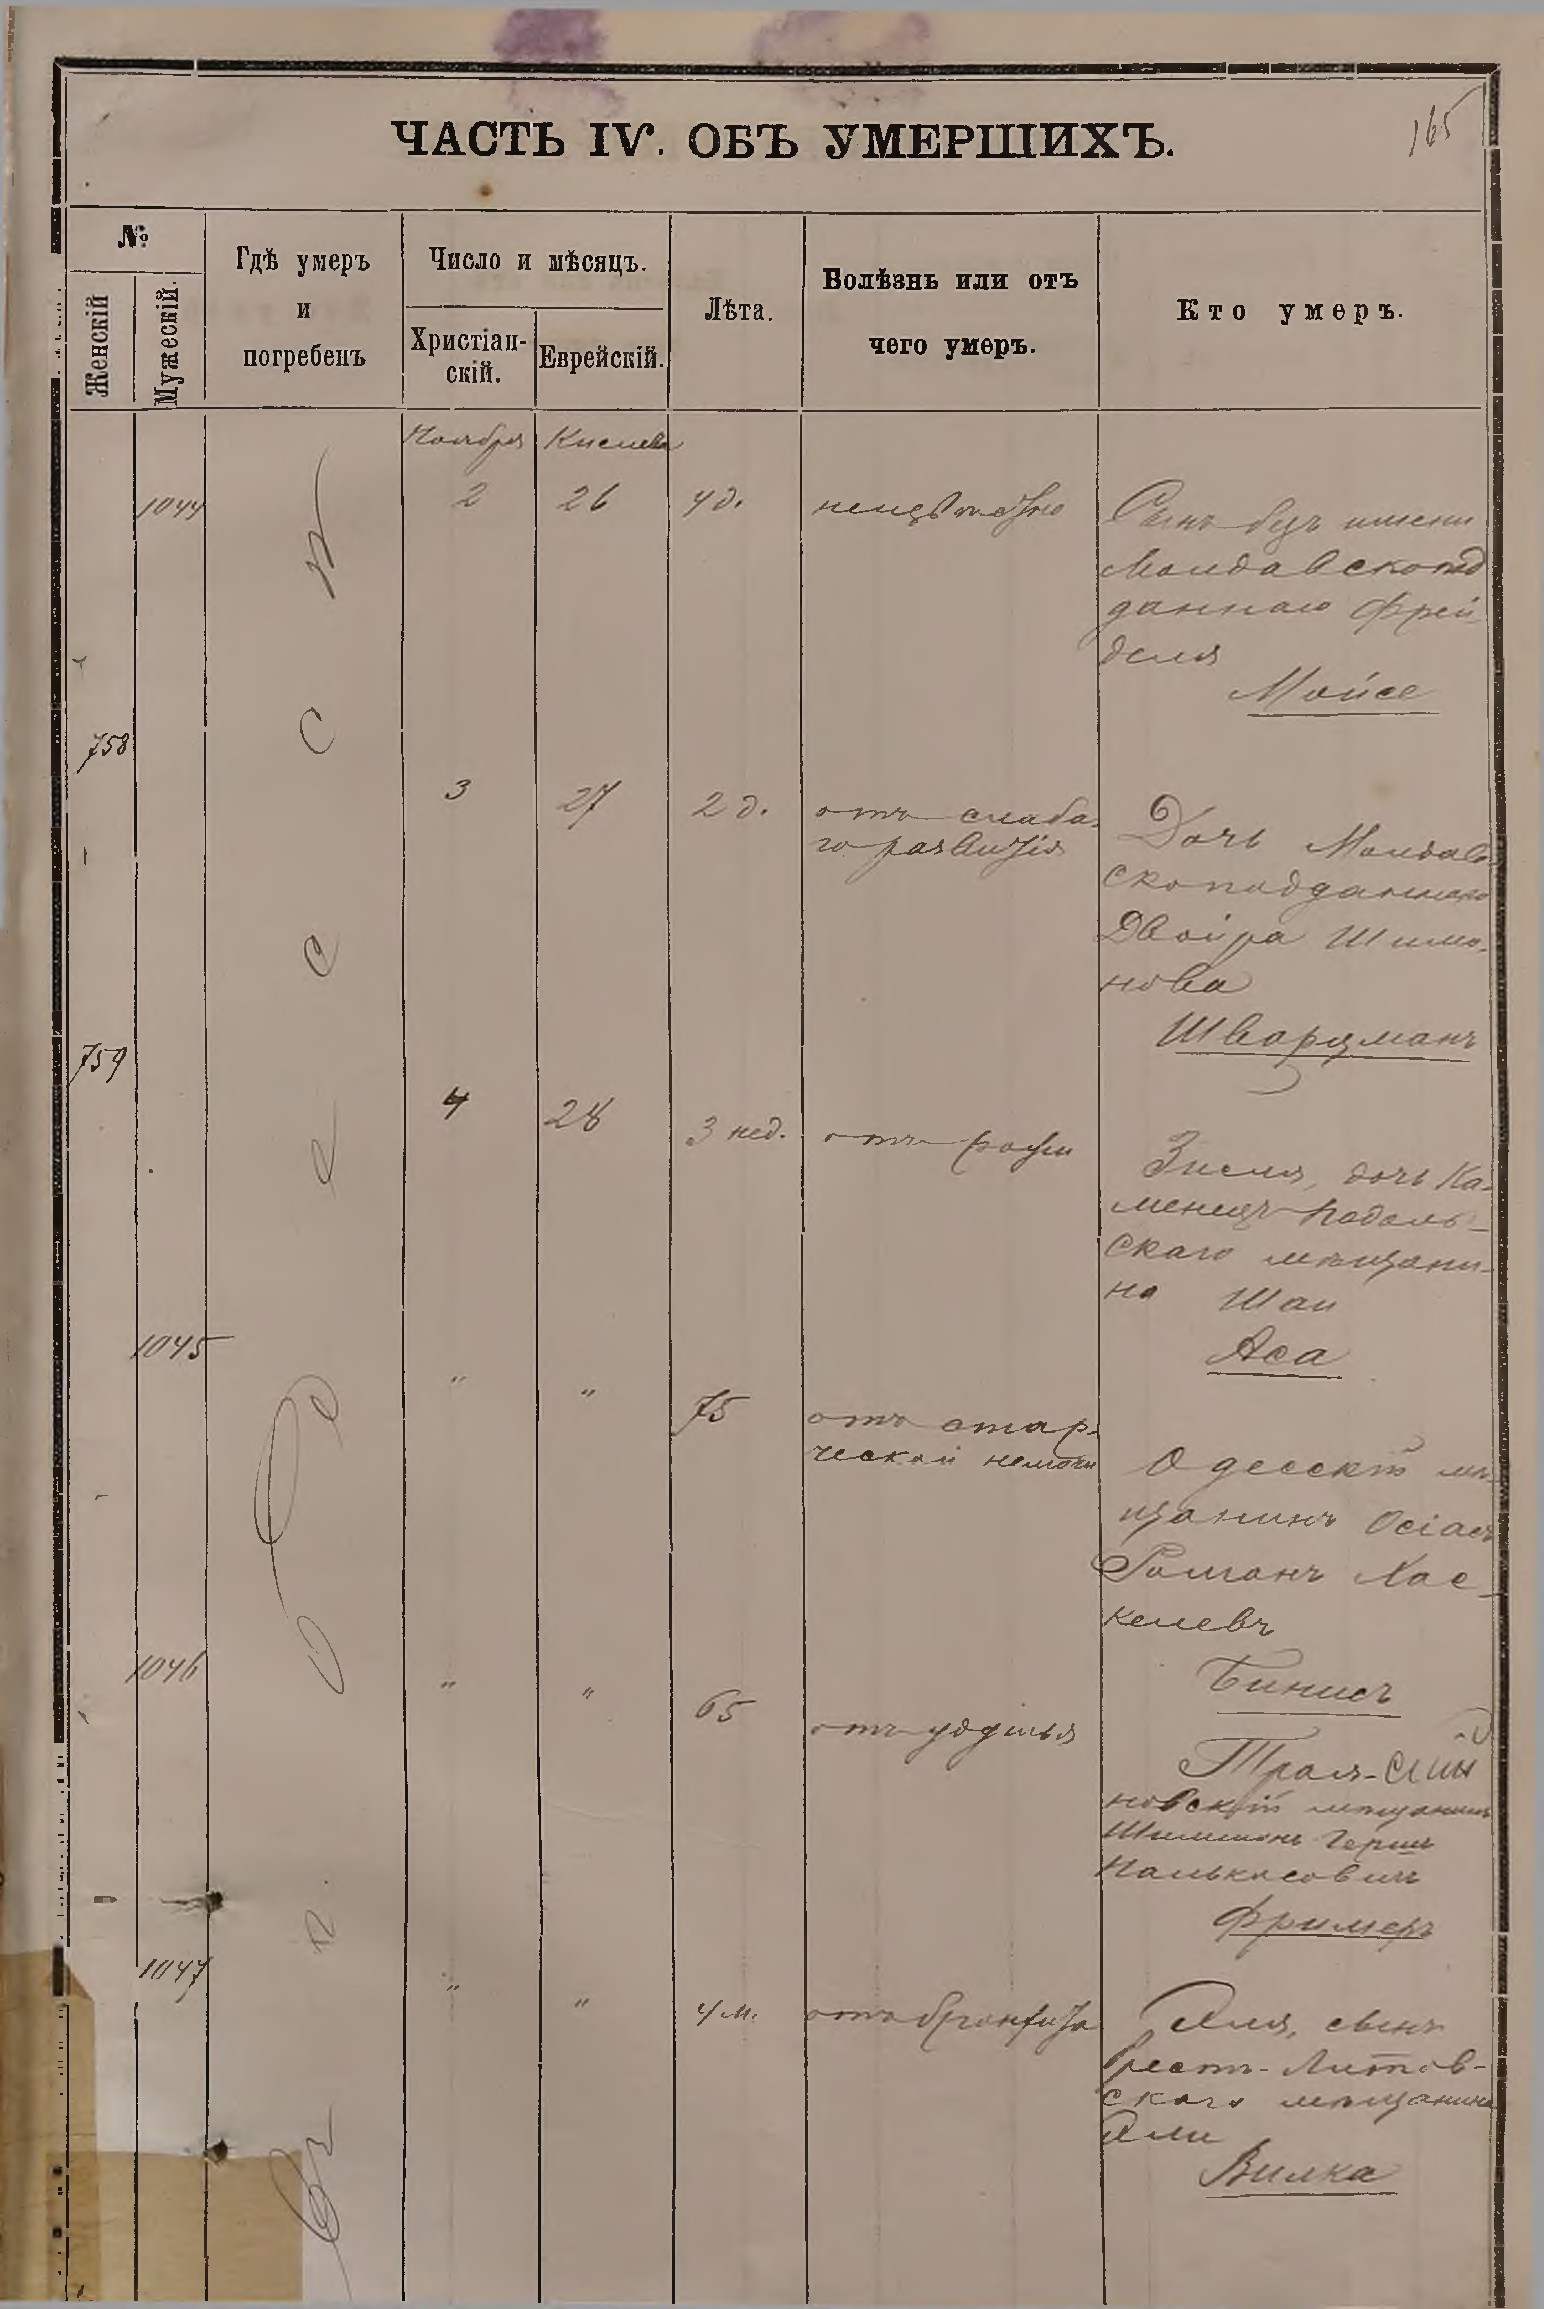 165
ЧАСТЬ IV. ОБЪ УМЕРШИХЪ.
№
Женскій
Мужескій.
Гдѣ умеръ
и
погребенъ
Число и мѣсяцъ.
Христіан-
скій.
Еврейскій.
Лѣта.
Болѣзнь или отъ
чего умеръ.
Кто умеръ.
Ноября Кислева
1044 2 26 4 д.
Сынъ безъ имени
Молдавскопод
даннаго Фрей-
деля
Мойсе
758
3 27 2 д. отъ слаба-
го развитія
Дочь Молдав-
скоподданнаго
Двойра Шимо-
нова
Шварцманъ
759
4 28 3 нед. отъ рожи
Зисля, дочь Ка-
менецъ-Подоль-
скаго мѣщани-
на Шаи
Аса
1045
" " 75 отъ стар-
ческой немочи
Одесскій мѣ-
щанинъ Осіасъ
Романъ Хас-
келевъ
Бинисъ
1046
" " 65 отъ удушья
новскій мѣщанинъ
Шимшонъ Герш
Фримеръ
1047
" " 4 м. отъ бронхита
Аля, сынъ
Брестъ-Литов-
скаго мѣщанина
Али
Вилка
въ г. Одессѣ